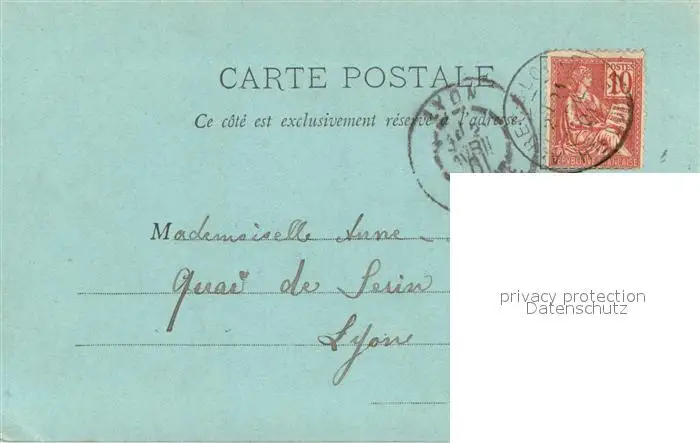 CARTE POSTALE
Ce côté est exclusivement réservé à l'adresse.
POSTES
10
REPUBLIQUE FRANÇAISE
LYON
AVRIL
01
Mademoiselle Anne
Quai de Serin
Lyon
privacy protection
Datenschutz